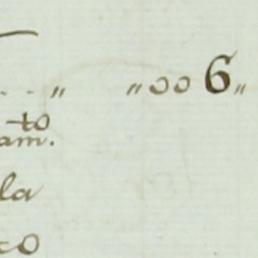 . . . „ „oo 6„
to
am.
la
co